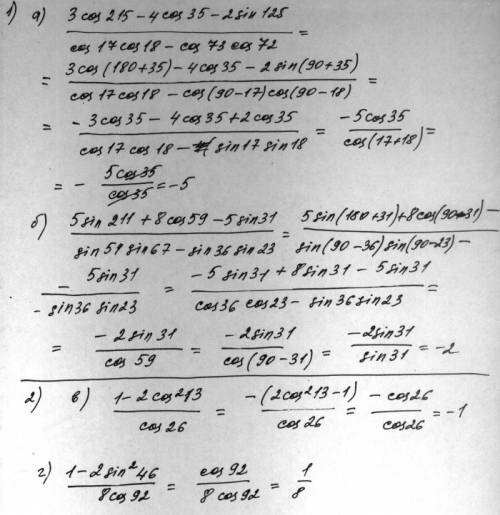 1) а) (3cos215 − 4cos35 − 2sin125)/(cos17cos18 − cos73 cos72) =
= (3cos(180+35) − 4cos35 − 2sin(90+35))/(cos17cos18 − cos(90−17)cos(90−18)) =
= (−3cos35 − 4cos35 + 2cos35)/(cos17cos18 − sin17sin18) = (−5cos35)/(cos(17+18)) =
= − (5cos35)/(cos35) = −5
б) (5sin211 + 8cos59 − 5sin31)/(sin51sin67 − sin36sin23) = (5sin(180+31)+8cos(90−31) −)/(sin(90−36)sin(90−23) −)
(− 5sin31)/(− sin36sin23) = (−5sin31 + 8sin31 − 5sin31)/(cos36cos23 − sin36sin23) =
= (−2sin31)/(cos59) = (−2sin31)/(cos(90−31)) = (−2sin31)/(sin31) = −2
2) в) (1−2cos²13)/(cos26) = (−(2cos²13−1))/(cos26) = (−cos26)/(cos26) = −1
г) (1−2sin²46)/(8cos92) = (cos92)/(8cos92) = 1/8